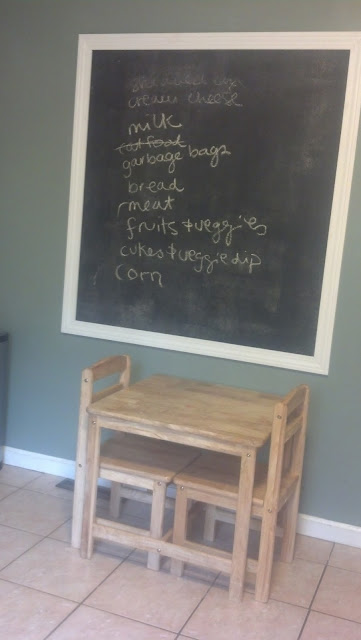 cream cheese
milk
cat food
garbage bags
bread
meat
fruits + veggies
cukes + veggie dip
corn